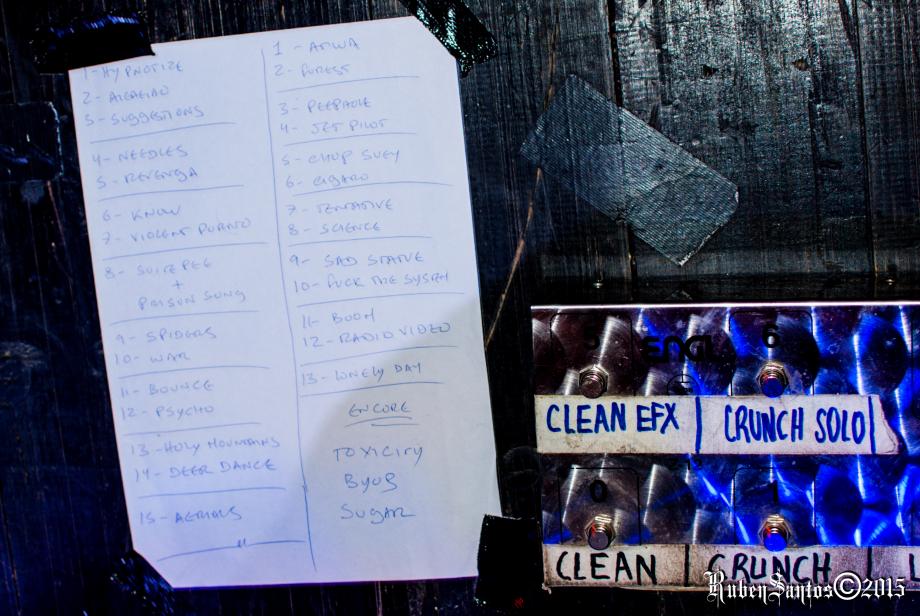 1 - HYPNOTIZE
2 - AREARIAO
3 - SUGGESTIONS
4 - NEEDLES
5 - REVENGA
6 - KNOW
7 - VIOLENT PORNO
8 - SUITE PEE
+
PRISON SONG
9 - SPIDERS
10 - WAR
11 - BOUNCE
12 - PSYCHO
13 - HOLY MOUNTAINS
14 - DEER DANCE
15 - AERIALS
1 - ATWA
2 - FOREST
3 - PEEPHOLE
4 - JET PILOT
5 - CHOP SUEY
6 - CIGARO
7 - TENTATIVE
8 - SCIENCE
9 - SAD STATUE
10 - FUCK THE SYSTEM
11 - BOOM
12 - RADIO VIDEO
13 - LONELY DAY
ENCORE
TOXICITY
BYOB
SUGAR
ENGL
6
CLEAN EFX | CRUNCH SOLO |
0 1
CLEAN | CRUNCH | L
RubenSantos©2015